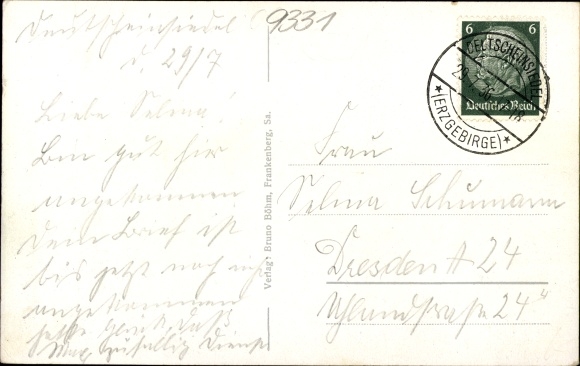 Deutscheinsiedel
d. 29/7
9331
Liebe Selma!
Bin gut hier
angekommen
Dein Brief ist
bis jetzt noch nicht
angekommen
Glück, daß
Max zufällig Dienst
Verlag: Bruno Böhm, Frankenberg, Sa.
6 6
Deutsches Reich
DEUTSCHEINSIEDEL
29.
(ERZGEBIRGE)
Frau
Selma Schumann
Dresden A 24
Uhlandstraße 24"